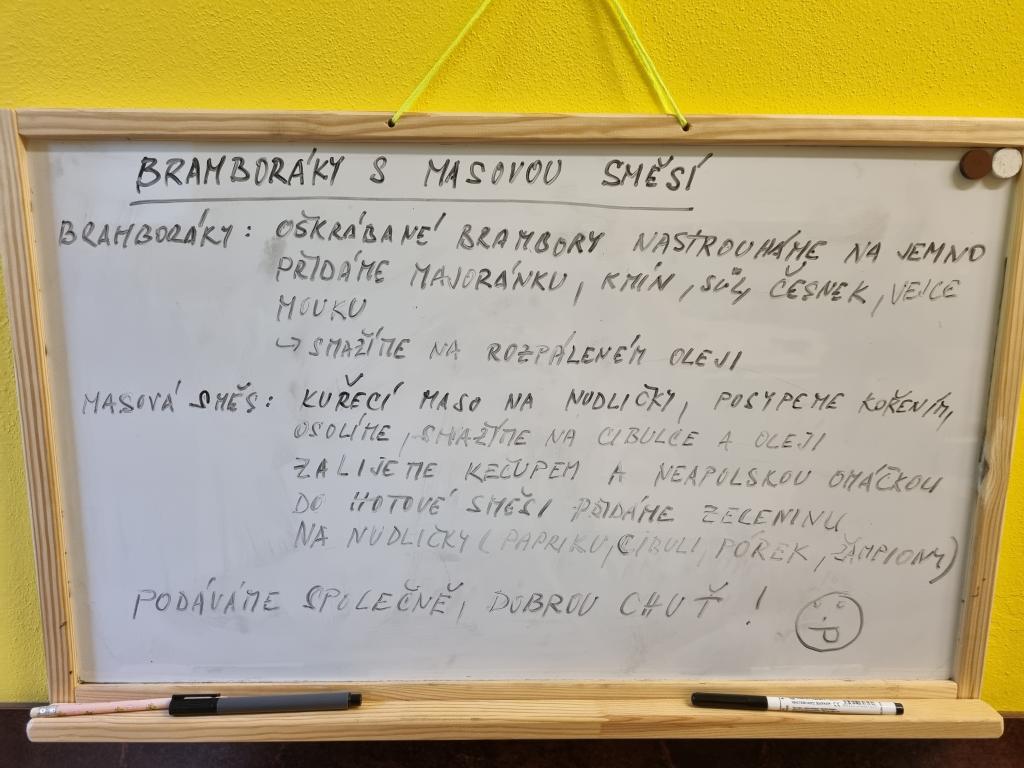 BRAMBORÁKY S MASOVOU SMĚSÍ
BRAMBORÁKY: OŠKRÁBANÉ BRAMBORY NASTROUHÁME NA JEMNO
PŘIDÁME MAJORÁNKU, KMÍN, SŮL, ČESNEK, VEJCE
MOUKU
↳ SMAŽÍME NA ROZPÁLENÉM OLEJI
MASOVÁ SMĚS: KUŘECÍ MASO NA NUDLIČKY, POSYPEME KOŘENÍM,
OSOLÍME, SMAŽÍME NA CIBULCE A OLEJI
ZALIJEME KEČUPEM A NEAPOLSKOU OMÁČKOU
DO HOTOVÉ SMĚSI PŘIDÁME ZELENINU
NA NUDLIČKY (PAPRIKU, CIBULI, PÓREK, ŽAMPIONY)
PODÁVÁME SPOLEČNĚ, DOBROU CHUŤ!